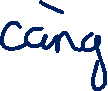 càng